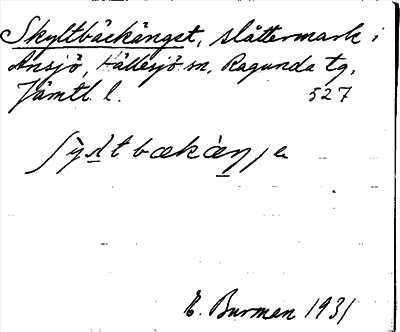 Skyltbäckänget, slåttermark i
Ansjö, Hällesjö sn, Ragunda tg,
Jämtl. l. 527
E. Burman 1931